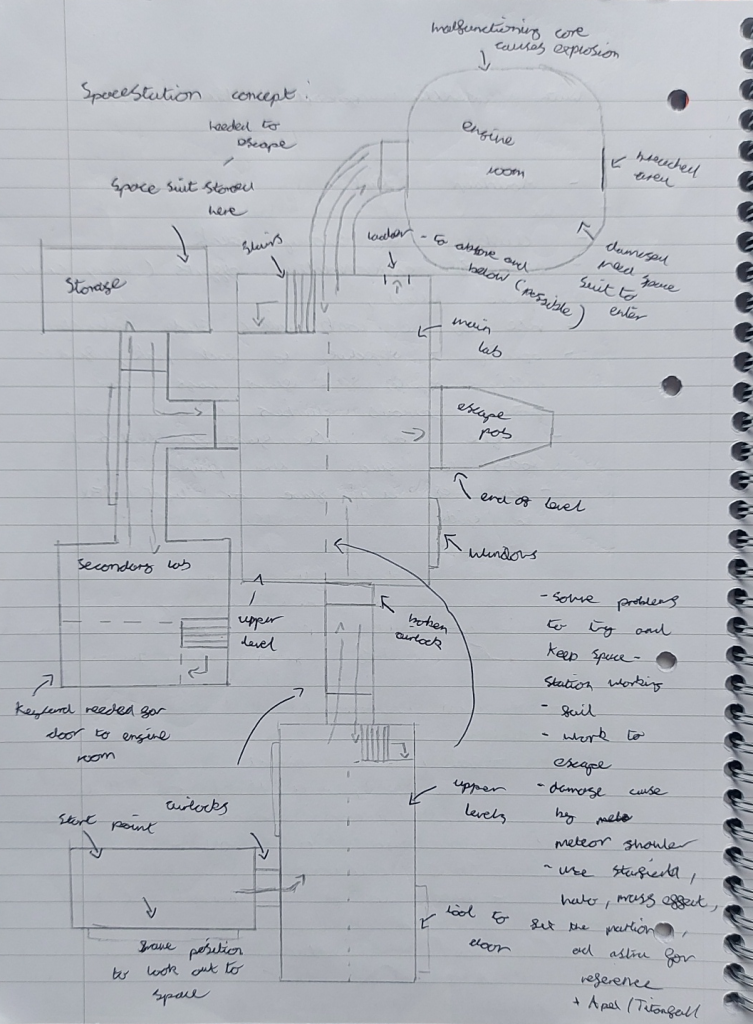 malfunctioning core
causes explosion
Space Station concept:
needed to
escape
Space suit stored
here
engine
room
breached
area
stairs
ladder - to above and
below (possible)
damaged
need space
suit to
enter
Storage
main
lab
escape
pod
end of level
windows
Secondary lab
upper
level
broken
airlock
Keycard needed for
door to engine
room
- solve problems
to try and
keep space-
station working
- fail
- work to
escape
- damage cause
by
meteor shower
- use starfield,
halo, mass effect,
the martian,
ad astra for
reference
+ Apex/Titanfall
airlocks
Start point
upper
levels
tool to
door
position
to look out to
space